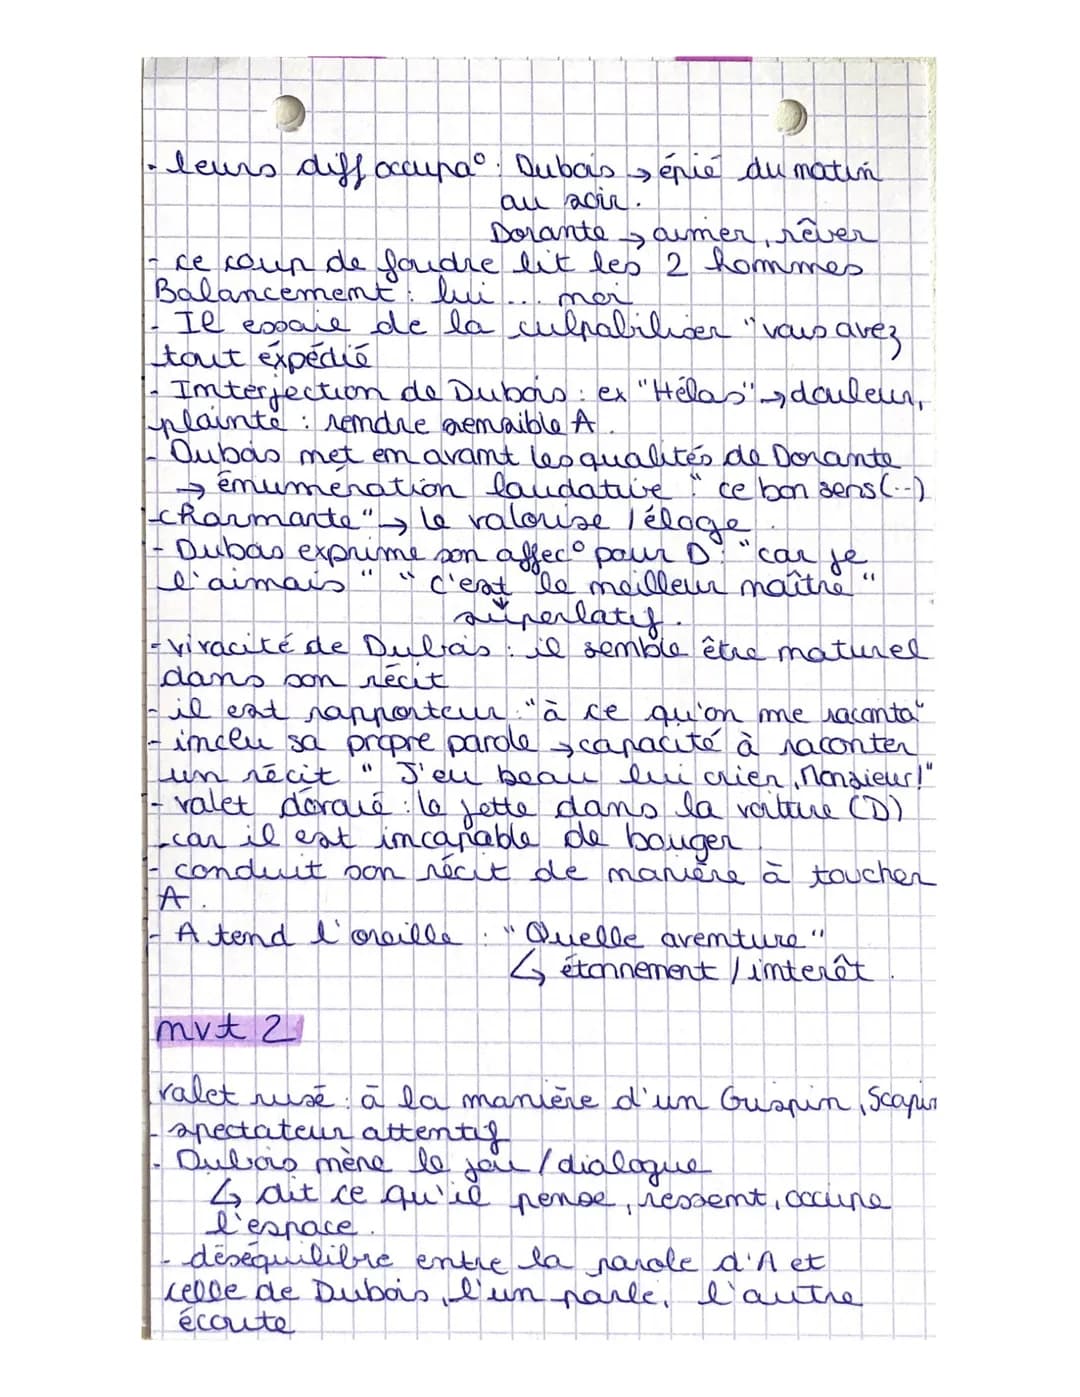 - leurs diff occupa°: Dubois → épié du matin
au soir.
Dorante → aimer, rêver
- ce coup de foudre lit les 2 hommes
Balancement : lui ... moi
- Il essaie de la culpabiliser "vous avez
tout éxpédié
- Interjection de Dubois : ex "Hélas" → douleur,
plainte : rendre sensible A.
- Dubois met en avant les qualités de Dorante
→ énumération laudative " ce bon sens (...)
charmante" → le valorise / éloge.
- Dubois exprime son affec° pour D : "car je
l'aimais" " c'est le meilleur maître"
superlatif.
- vivacité de Dubois : il semble être naturel
dans son récit
- il est rapporteur : "à ce qu'on me raconta"
- inclu sa propre parole → capacité à raconter
un récit " J'eu beau lui crier, Monsieur!"
- valet dévoué : le jette dans la voiture (D)
car il est incapable de bouger
- conduit son récit de manière à toucher
A.
- A tend l'oreille : "Quelle aventure"
↳ étonnement / interêt.
mvt 2
valet rusé : à la manière d'un Crispin, Scapin
- spectateur attentif
- Dubois mène le jeu / dialogue
↳ dit ce qu'il pense, ressent, occupe
l'espace.
- déséquilibre entre la parole d'A et
celle de Dubois, l'un parle, l'autre
écoute